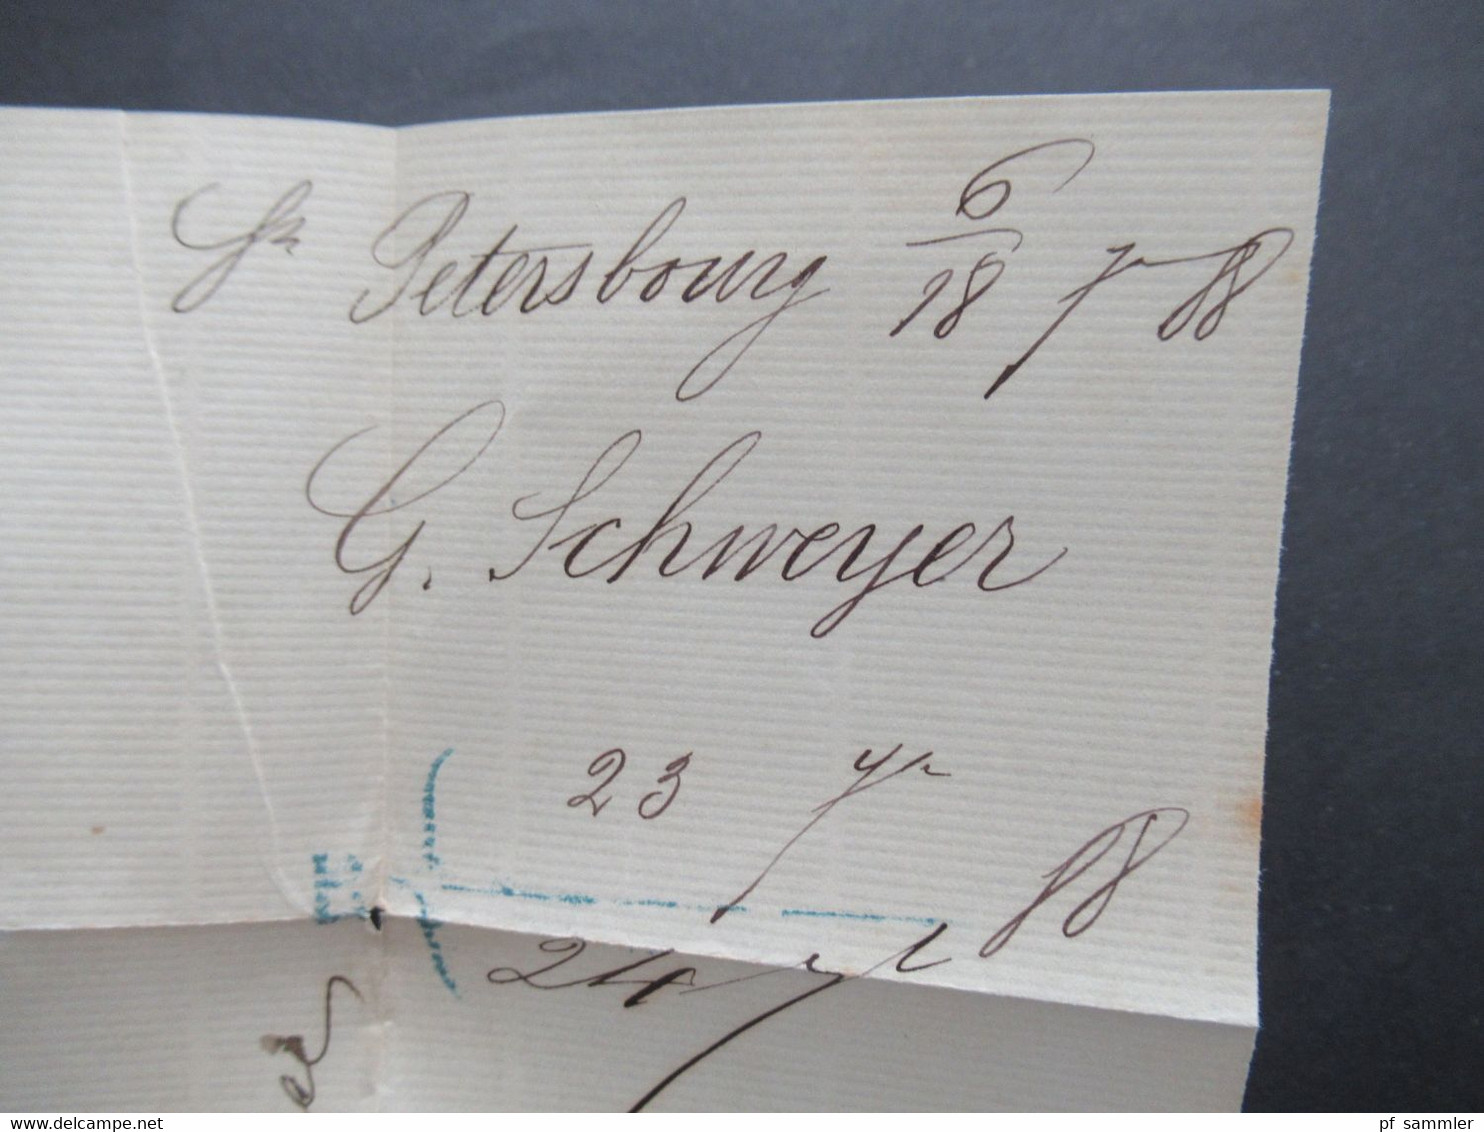 St Petersbourg 6/18 7r 88
G. Schweyer
23 7r 88
24
www.delcampe.net
pf_sammler